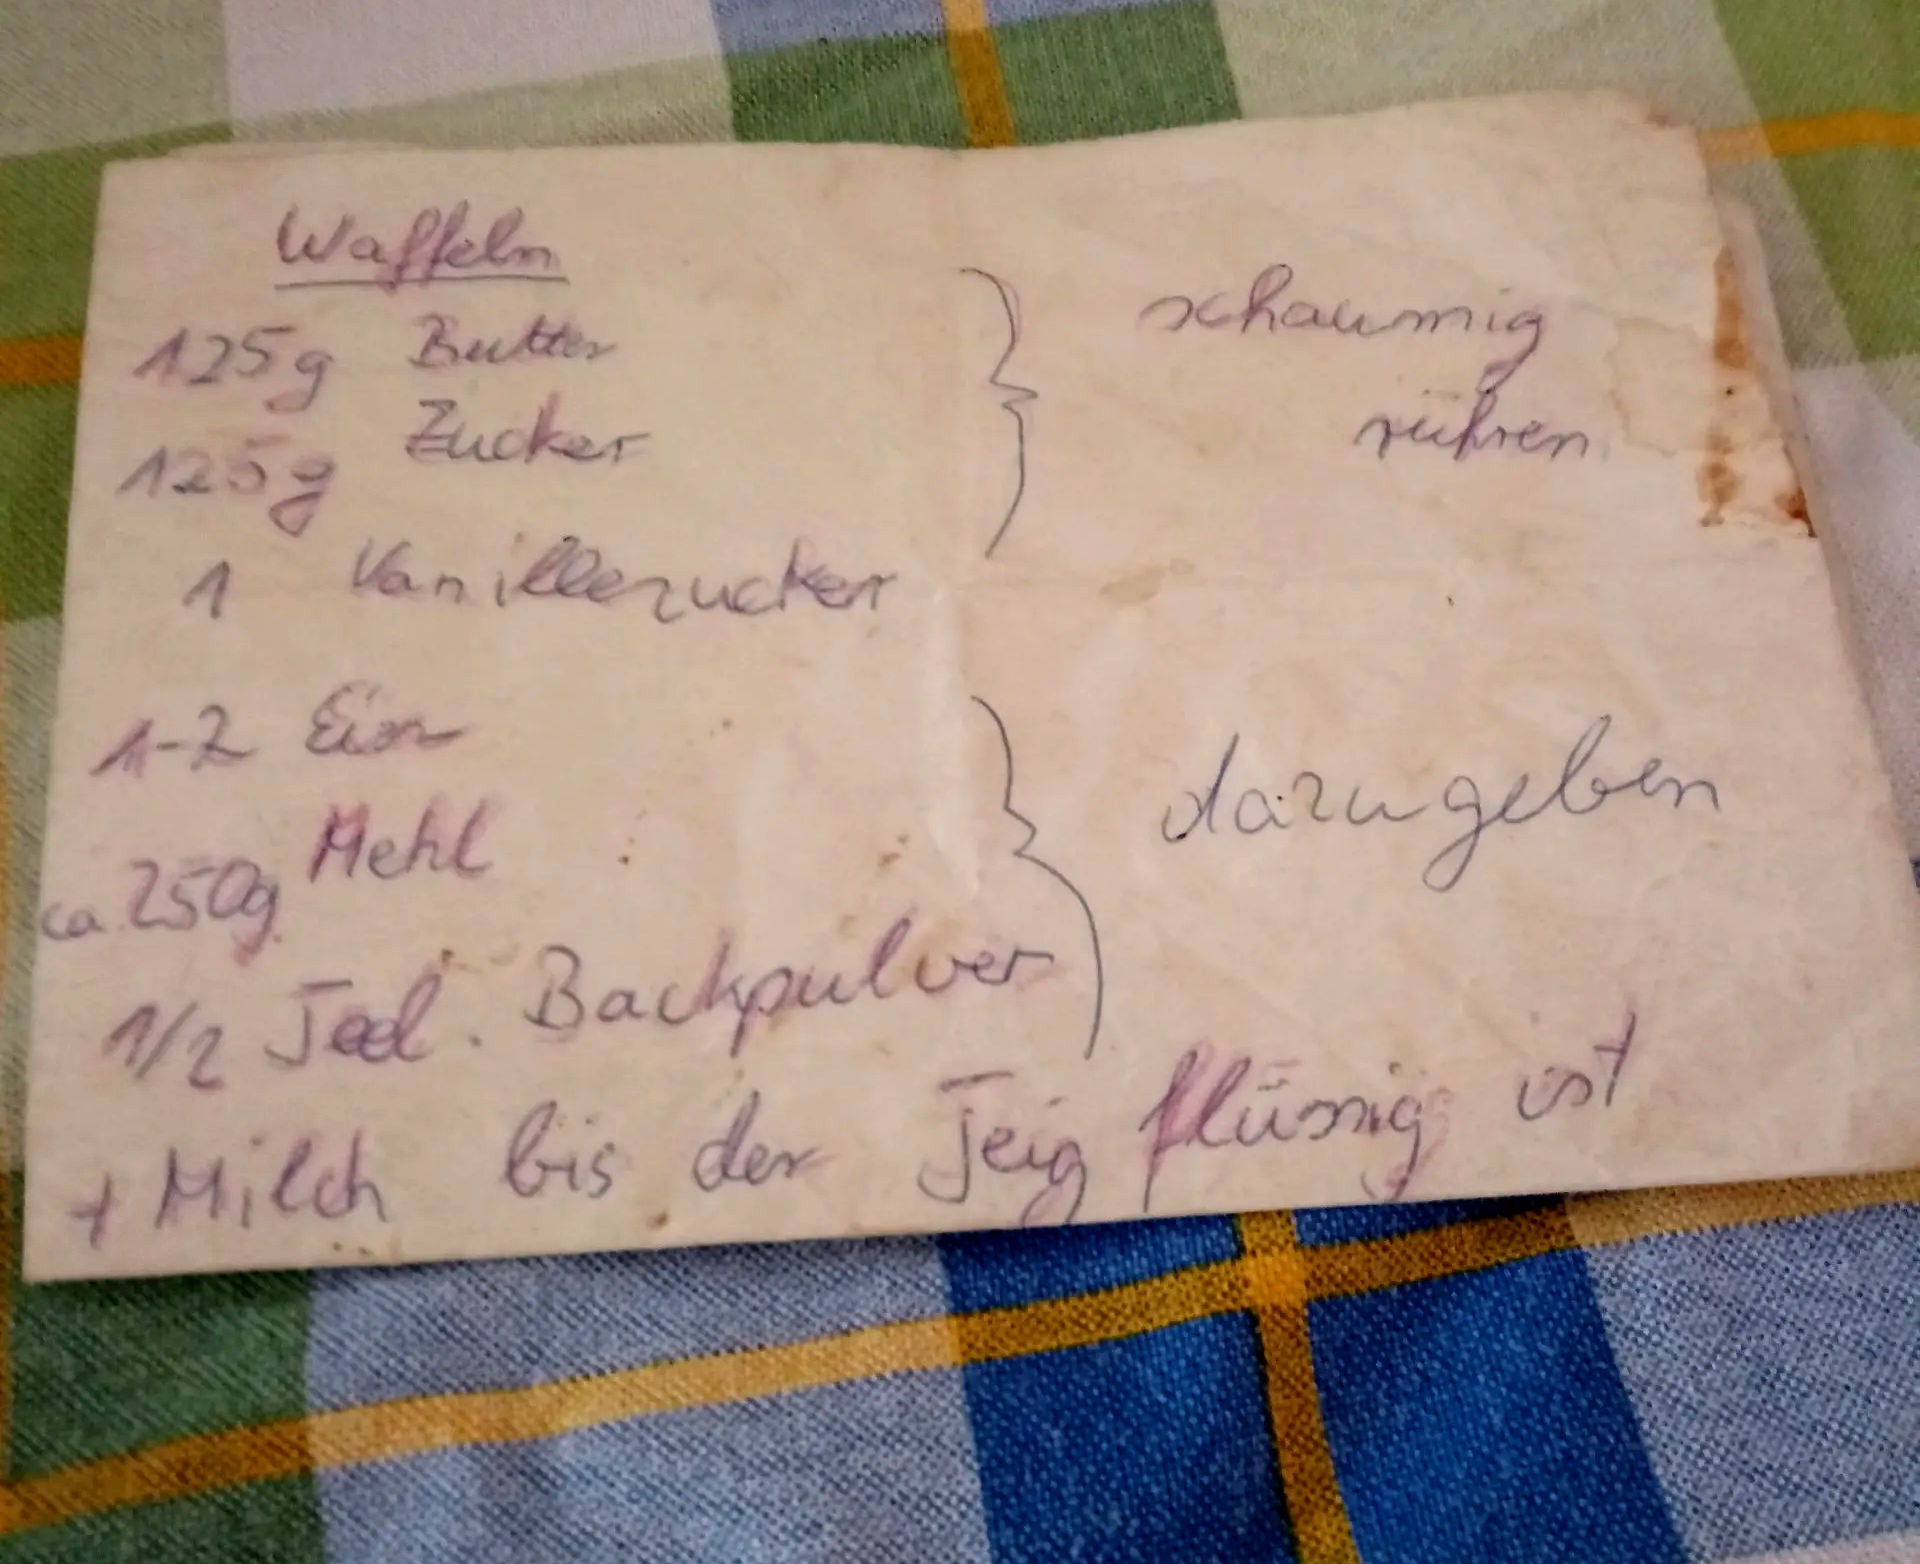 Waffeln
125g Butter
125g Zucker
1 Vanillezucker
schaumig
rühren
1-2 Eier
ca. 250g Mehl
1/2 Teel. Backpulver
dazugeben
+ Milch bis der Teig flüssig ist